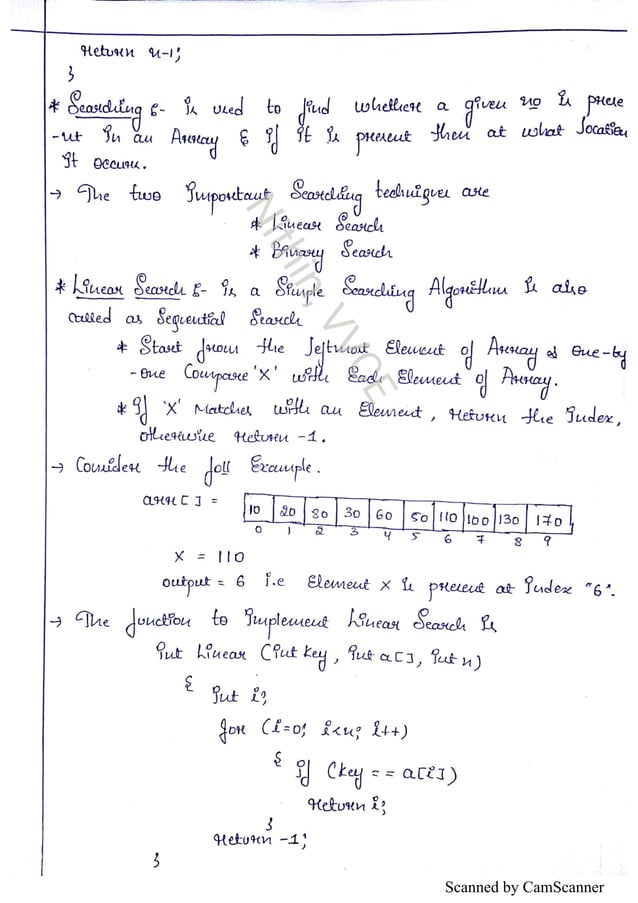 return n-1;
}
* Searching :- Is used to find whether a given no is prese
-nt in an Array & if it is present then at what location
It occurs.
→ The two Important Searching techniques are
* Linear Search
* Binary Search
* Linear Search :- Is a Simple Searching Algorithm is also
called as Sequential Search
* Start from the leftmost Element of Array & one-by
-one Compare 'X' with Each Element of Array.
* If 'X' Matches with an Element, return the Index,
otherwise return -1.
→ Consider the foll Example.
arr[ ] = 10 20 80 30 60 50 110 100 130 170
0 1 2 3 4 5 6 7 8 9
X = 110
output = 6 i.e Element x is present at Index "6".
→ The function to Implement Linear Search is
Int Linear (Int key, Int a[ ], Int n)
{ Int i;
for (i=0; i<n; i++)
{ if (key == a[i])
return i;
}
return -1;
}
Nithin, VVCE
Scanned by CamScanner